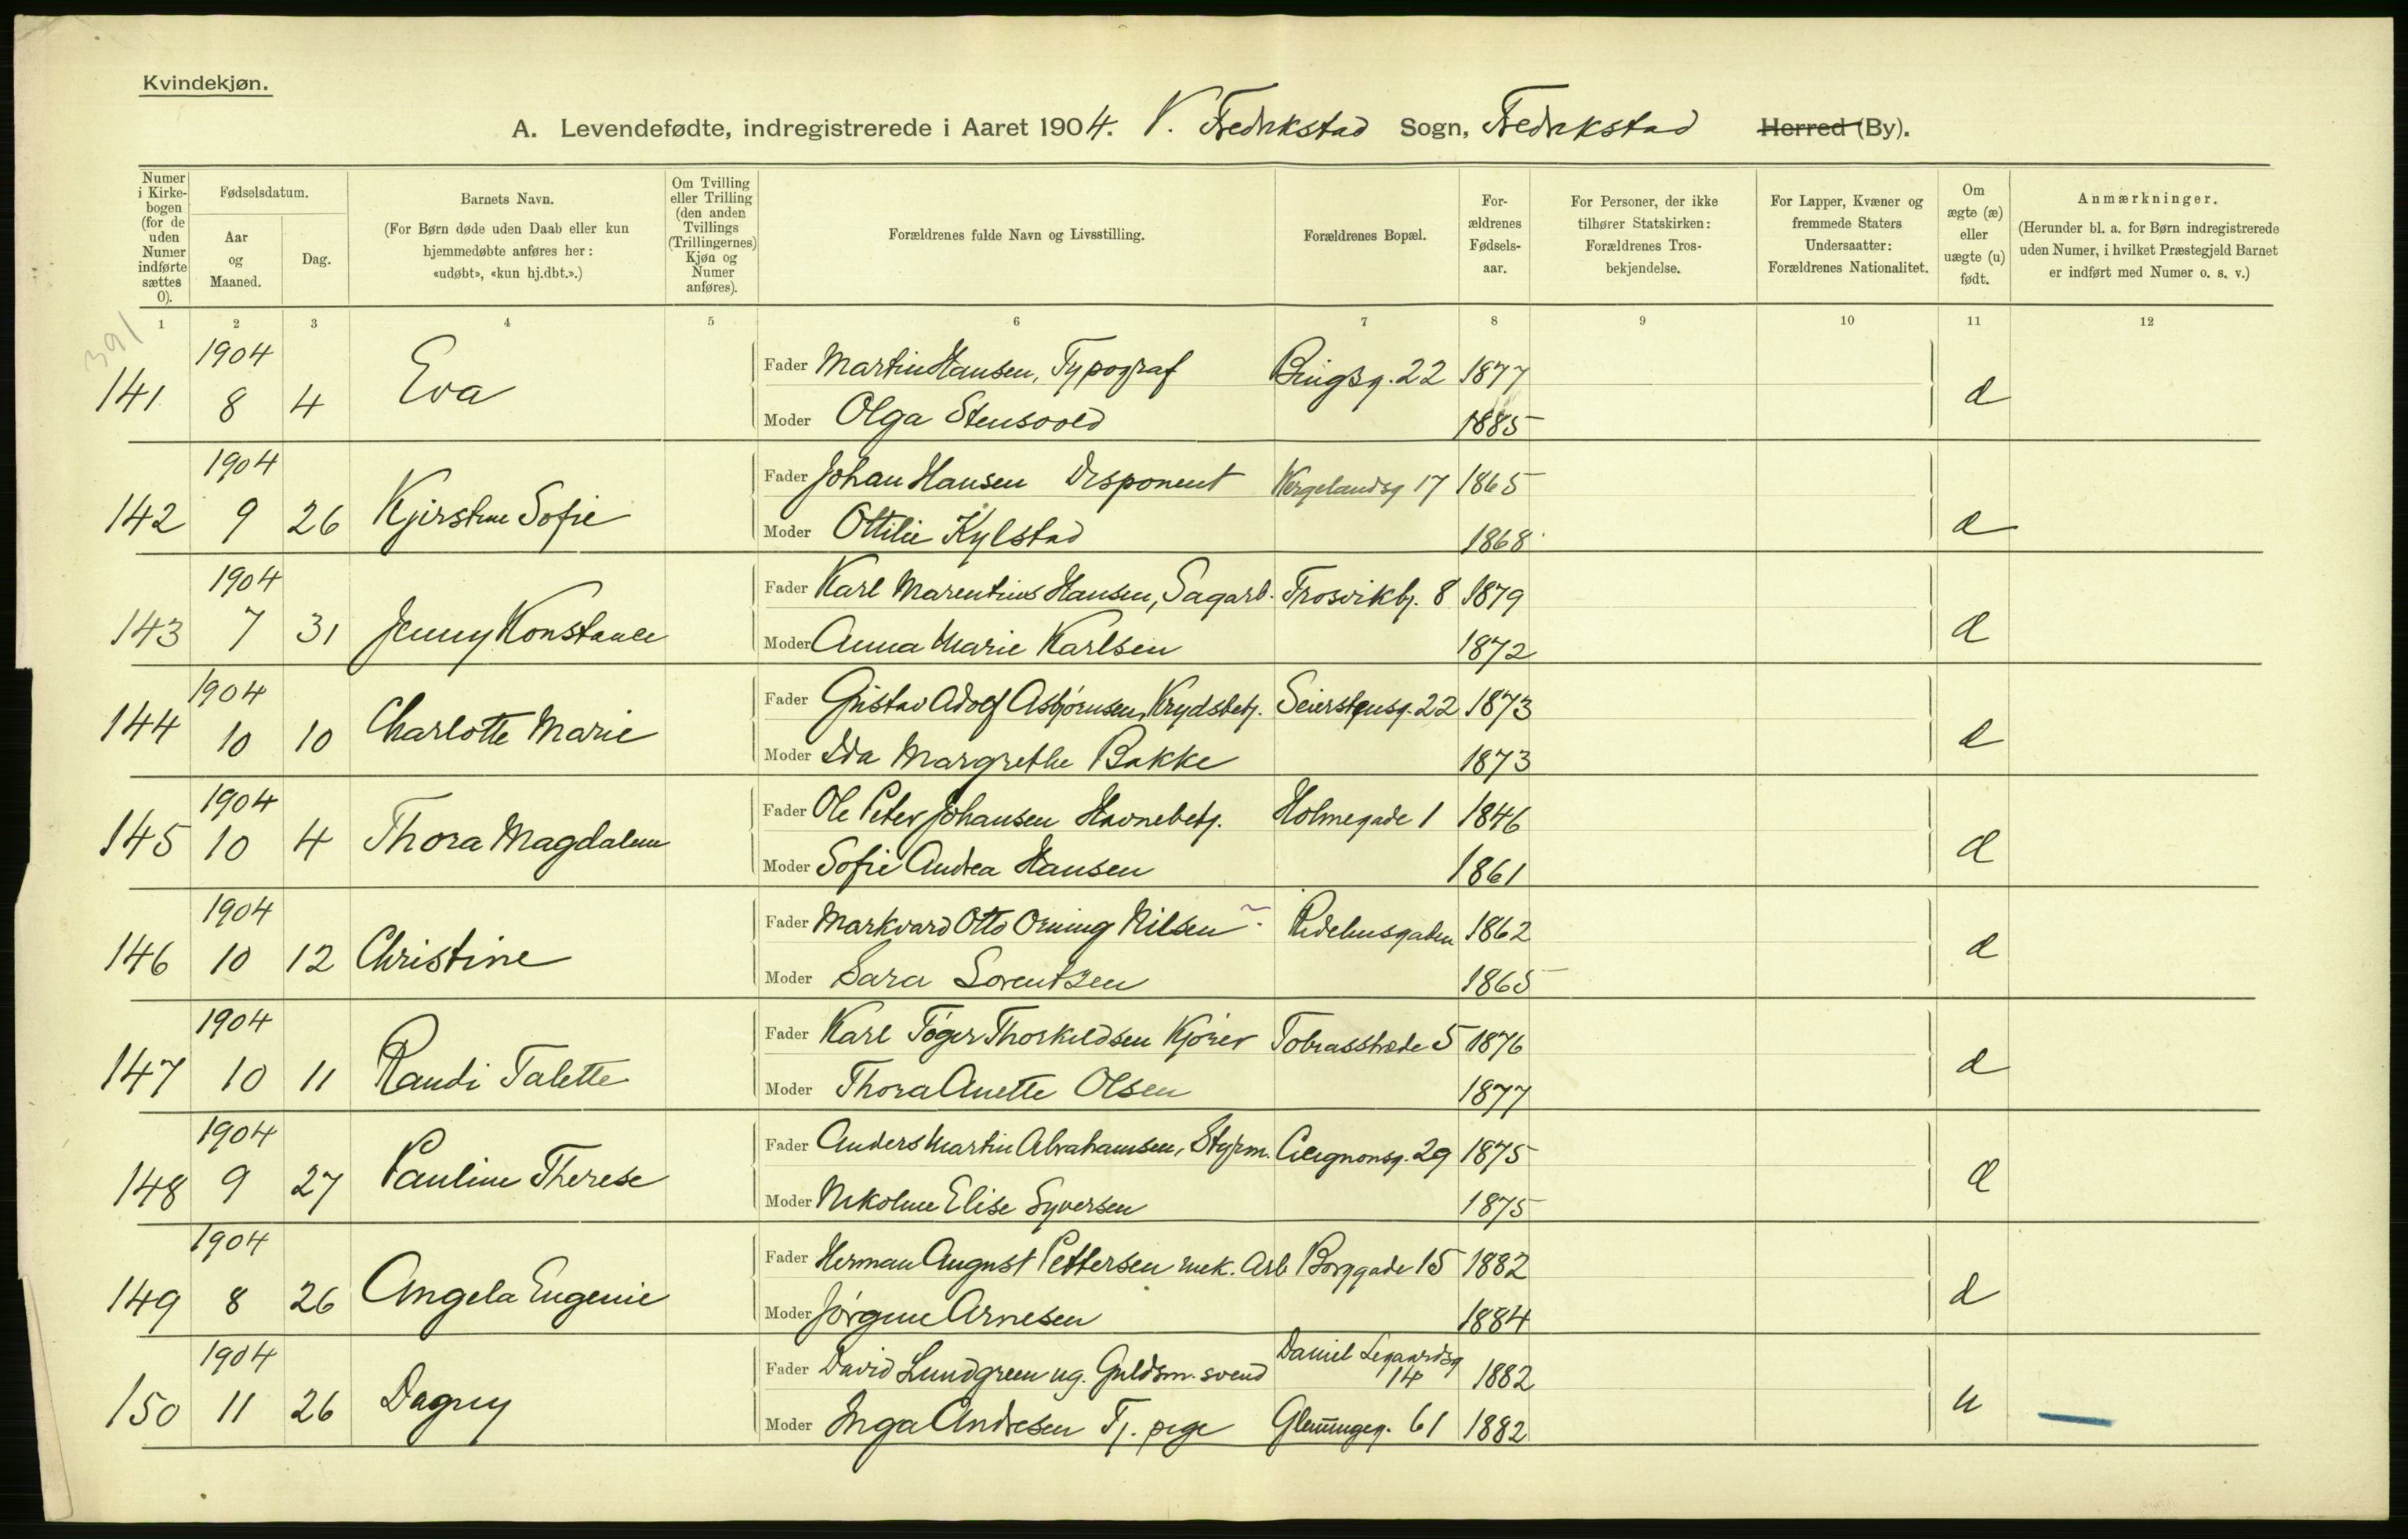 Kvindekjøn.
A. Levendefødte, indregistrerede i Aaret 1904. V. Fredrikstad Sogn, Fredrikstad Herred (By).
Numer i Kirkebogen (for de uden Numer indførte sættes 0).
Fødselsdatum.
Aar og Maaned.
Dag.
Barnets Navn.
(For Børn døde uden Daab eller kun hjemmedøbte anføres her: «udøbt», «kun hj.dbt.».)
Om Tvilling eller Trilling (den anden Tvillings (Trillingernes) Kjøn og Numer anføres).
Forældrenes fulde Navn og Livsstilling.
Forældrenes Bopæl.
Forældrenes Fødselsaar.
For Personer, der ikke tilhører Statskirken: Forældrenes Trosbekjendelse.
For Lapper, Kvæner og fremmede Staters Undersaatter: Forældrenes Nationalitet.
Om ægte (æ) eller uægte (u) født.
Anmærkninger.
(Herunder bl. a. for Børn indregistrerede uden Numer, i hvilket Præstegjeld Barnet er indført med Numer o. s. v.)
1 2 3 4 5 6 7 8 9 10 11 12
391
141 1904 8 4 Eva Fader Martin Hansen, Typograf Bingsg. 22 1877 æ
Moder Olga Stensvold 1885
142 1904 9 26 Kjirstine Sofie Fader Johan Hansen Disponent Wergelandsg 17 1865 æ
Moder Ottilie Kylstad 1868
143 1904 7 31 Jenny Konstance Fader Karl Marentius Hansen, Sagarb. Trosvikbg. 8 1879 æ
Moder Anna Marie Karlsen 1872
144 1904 10 10 Charlotte Marie Fader Gustav Adolf Asbjørnsen, Krydsbetj. Seierstensg. 22 1873 æ
Moder Ida Margrethe Bakke 1873
145 1904 10 4 Thora Magdalene Fader Ole Peter Johansen Havnebetj. Holmegade 1 1846 æ
Moder Sofie Andrea Hansen 1861
146 1904 10 12 Christine Fader Markvard Otto Orning Nilsen Ridehusgaden 1862 æ
Moder Sara Lorentzen 1865
147 1904 10 11 Randi Talette Fader Karl Tøger Thorkildsen Kjører Tobiasstræde 5 1876 æ
Moder Thora Anette Olsen 1877
148 1904 9 27 Pauline Therese Fader Anders Martin Abrahamsen, Styrm. Cicignonsg. 29 1875 æ
Moder Nikoline Elise Syversen 1875
149 1904 8 26 Angela Eugenie Fader Herman August Pettersen mek. Arb Borggade 15 1882 æ
Moder Jørgine Arnesen 1884
150 1904 11 26 Dagny Fader David Lundgreen ug. Guldsm. svend Daniel Legaardsg 14 1882 u
Moder Inga Andresen Tj. pige Glemmingeg. 61 1882